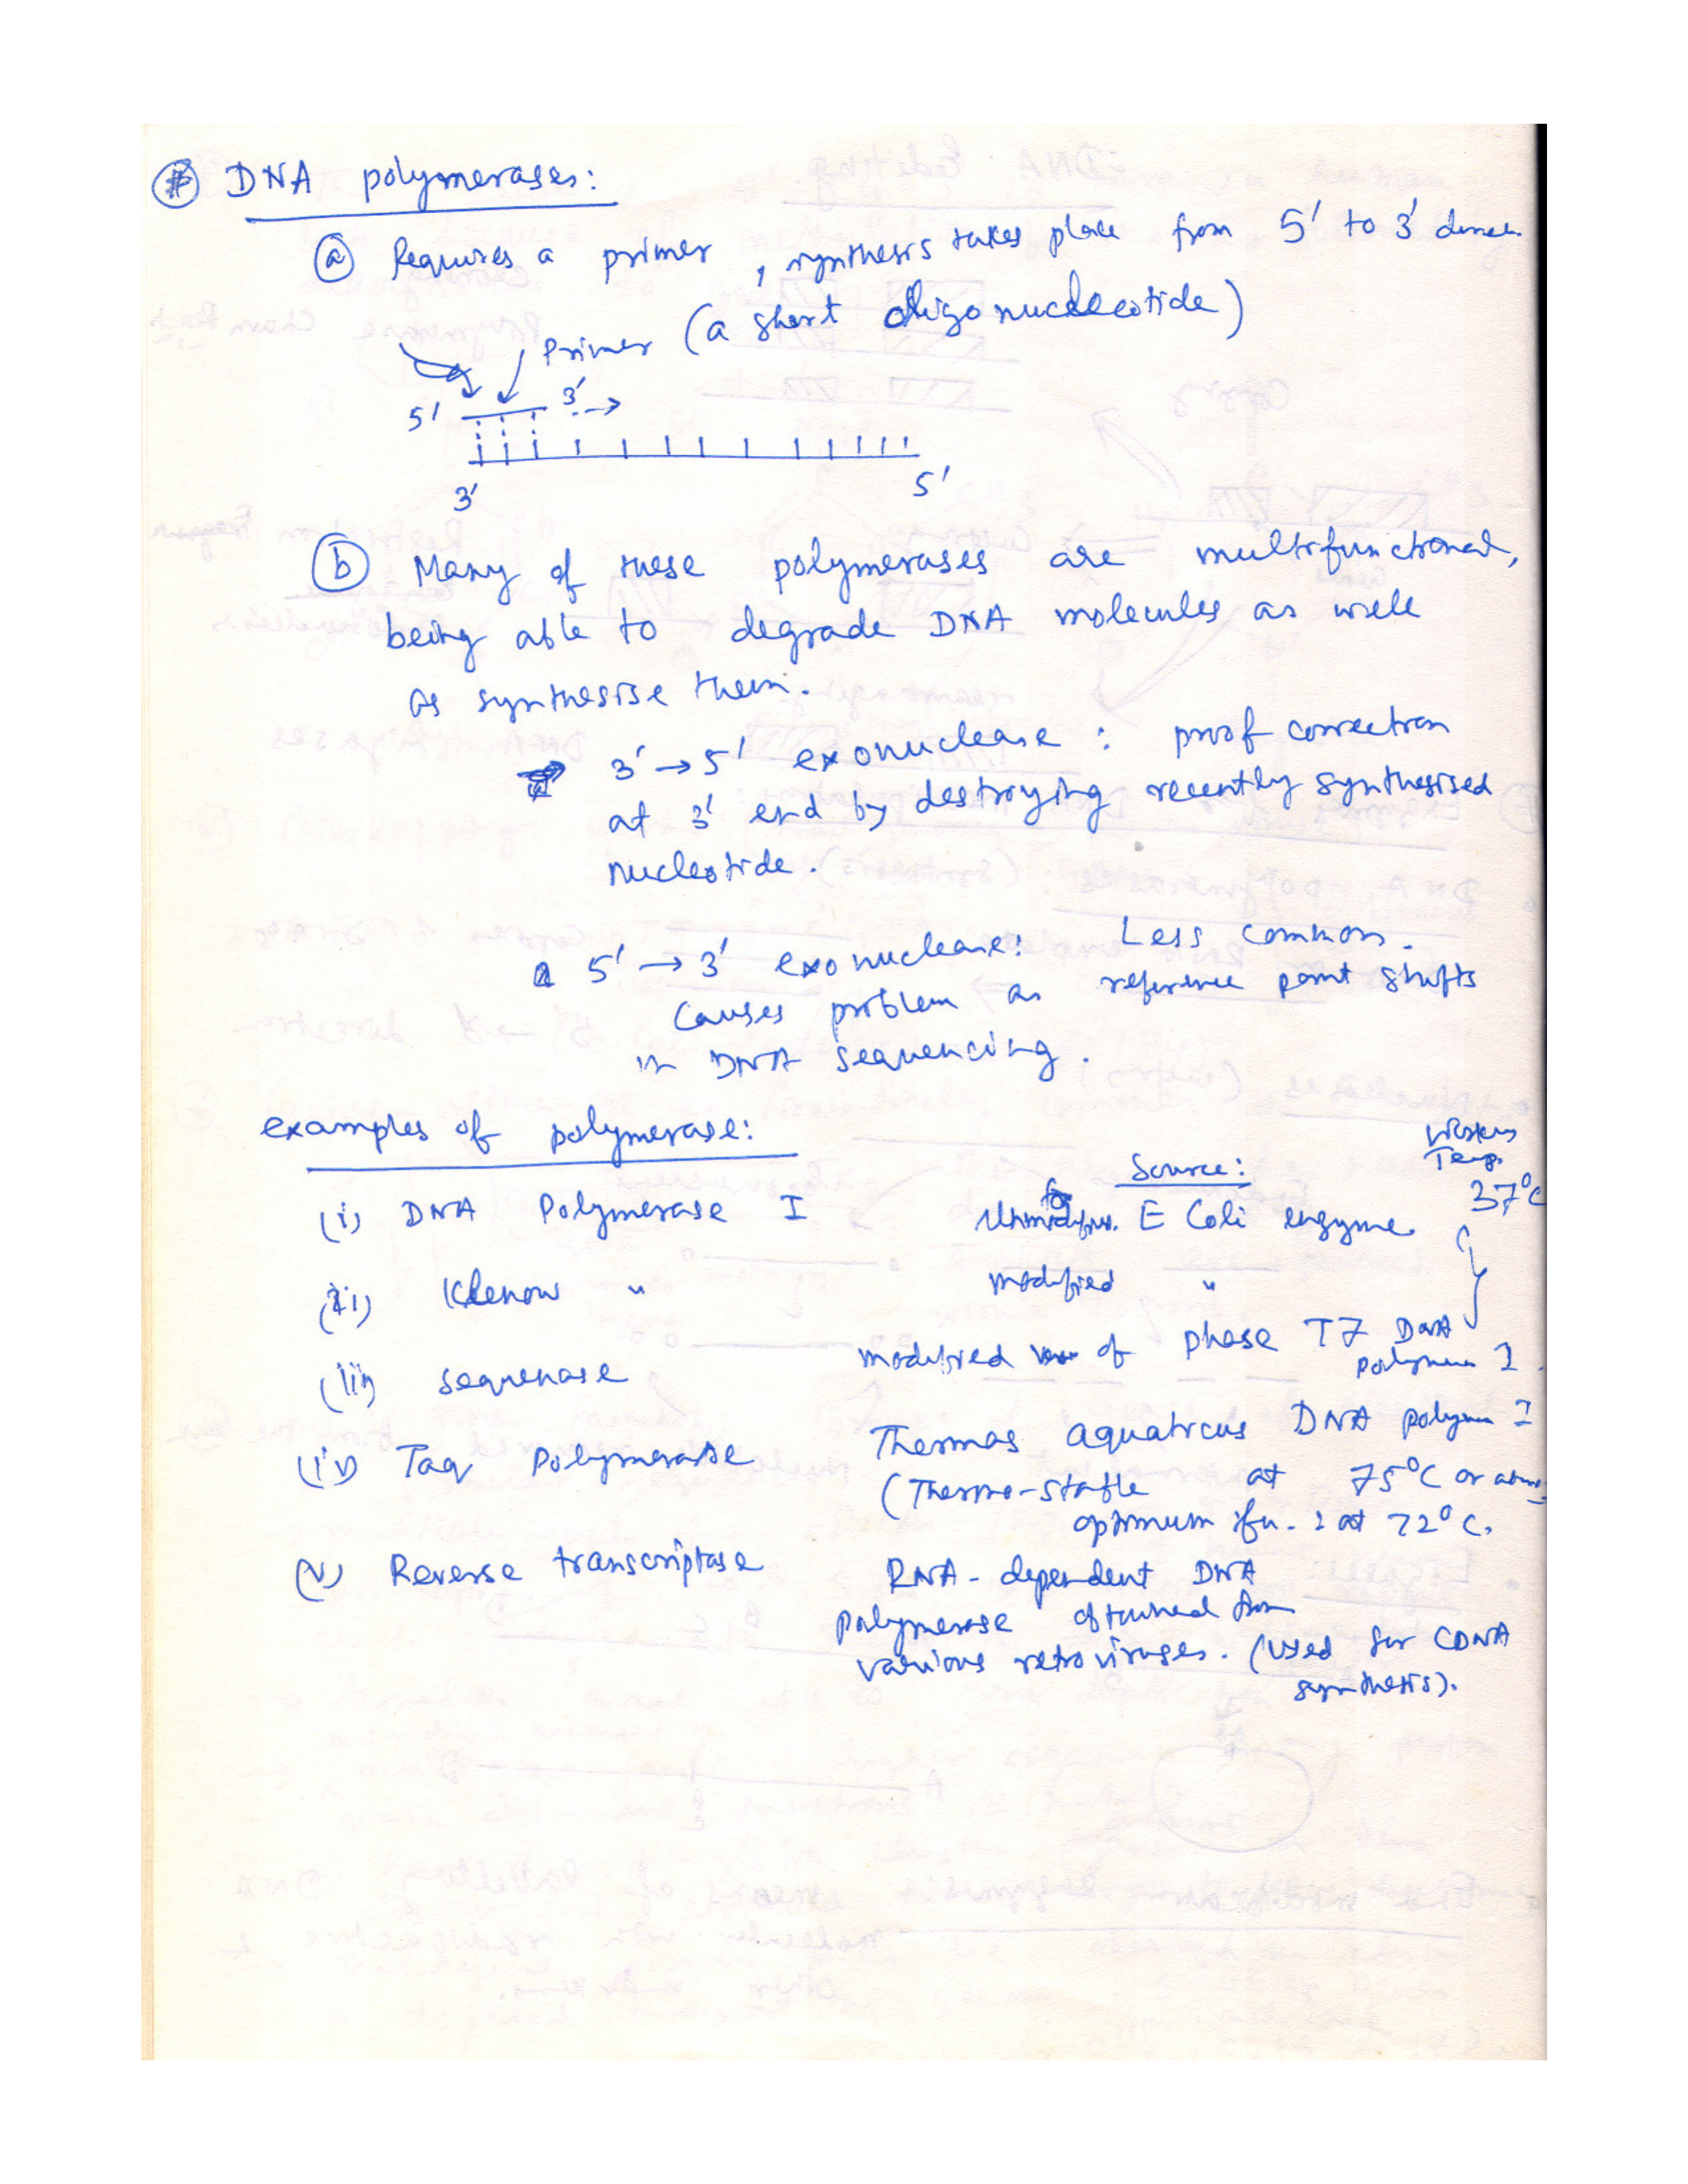 # DNA polymerases:
(a) Requires a primer, synthesis takes place from 5' to 3' direc.
Primer (a short oligonucleotide)
5' 3' →
3' 5'
(b) Many of these polymerases are multifunctional,
being able to degrade DNA molecules as well
as synthesise them.
3' → 5' exonuclease : proof correction
at 3' end by destroying recently synthesised
nucleotide.
5' → 3' exonuclease: Less common.
Causes problem as reference point shifts
in DNA sequencing.
examples of polymerase:
Source: Working Temp.
(i) DNA Polymerase I Unmodified. E Coli enzyme 37°C
(ii) Klenow " modified "
(iii) sequenase modified of phase T7 DNA polymerase I.
(iv) Taq Polymerase Thermas aquaticus DNA polym I
(Thermo-stable at 75°C or above
optimum at 72°C.
(v) Reverse transcriptase RNA-dependent DNA
polymerase obtained from
various retroviruses. (used for CDNA
synthesis).